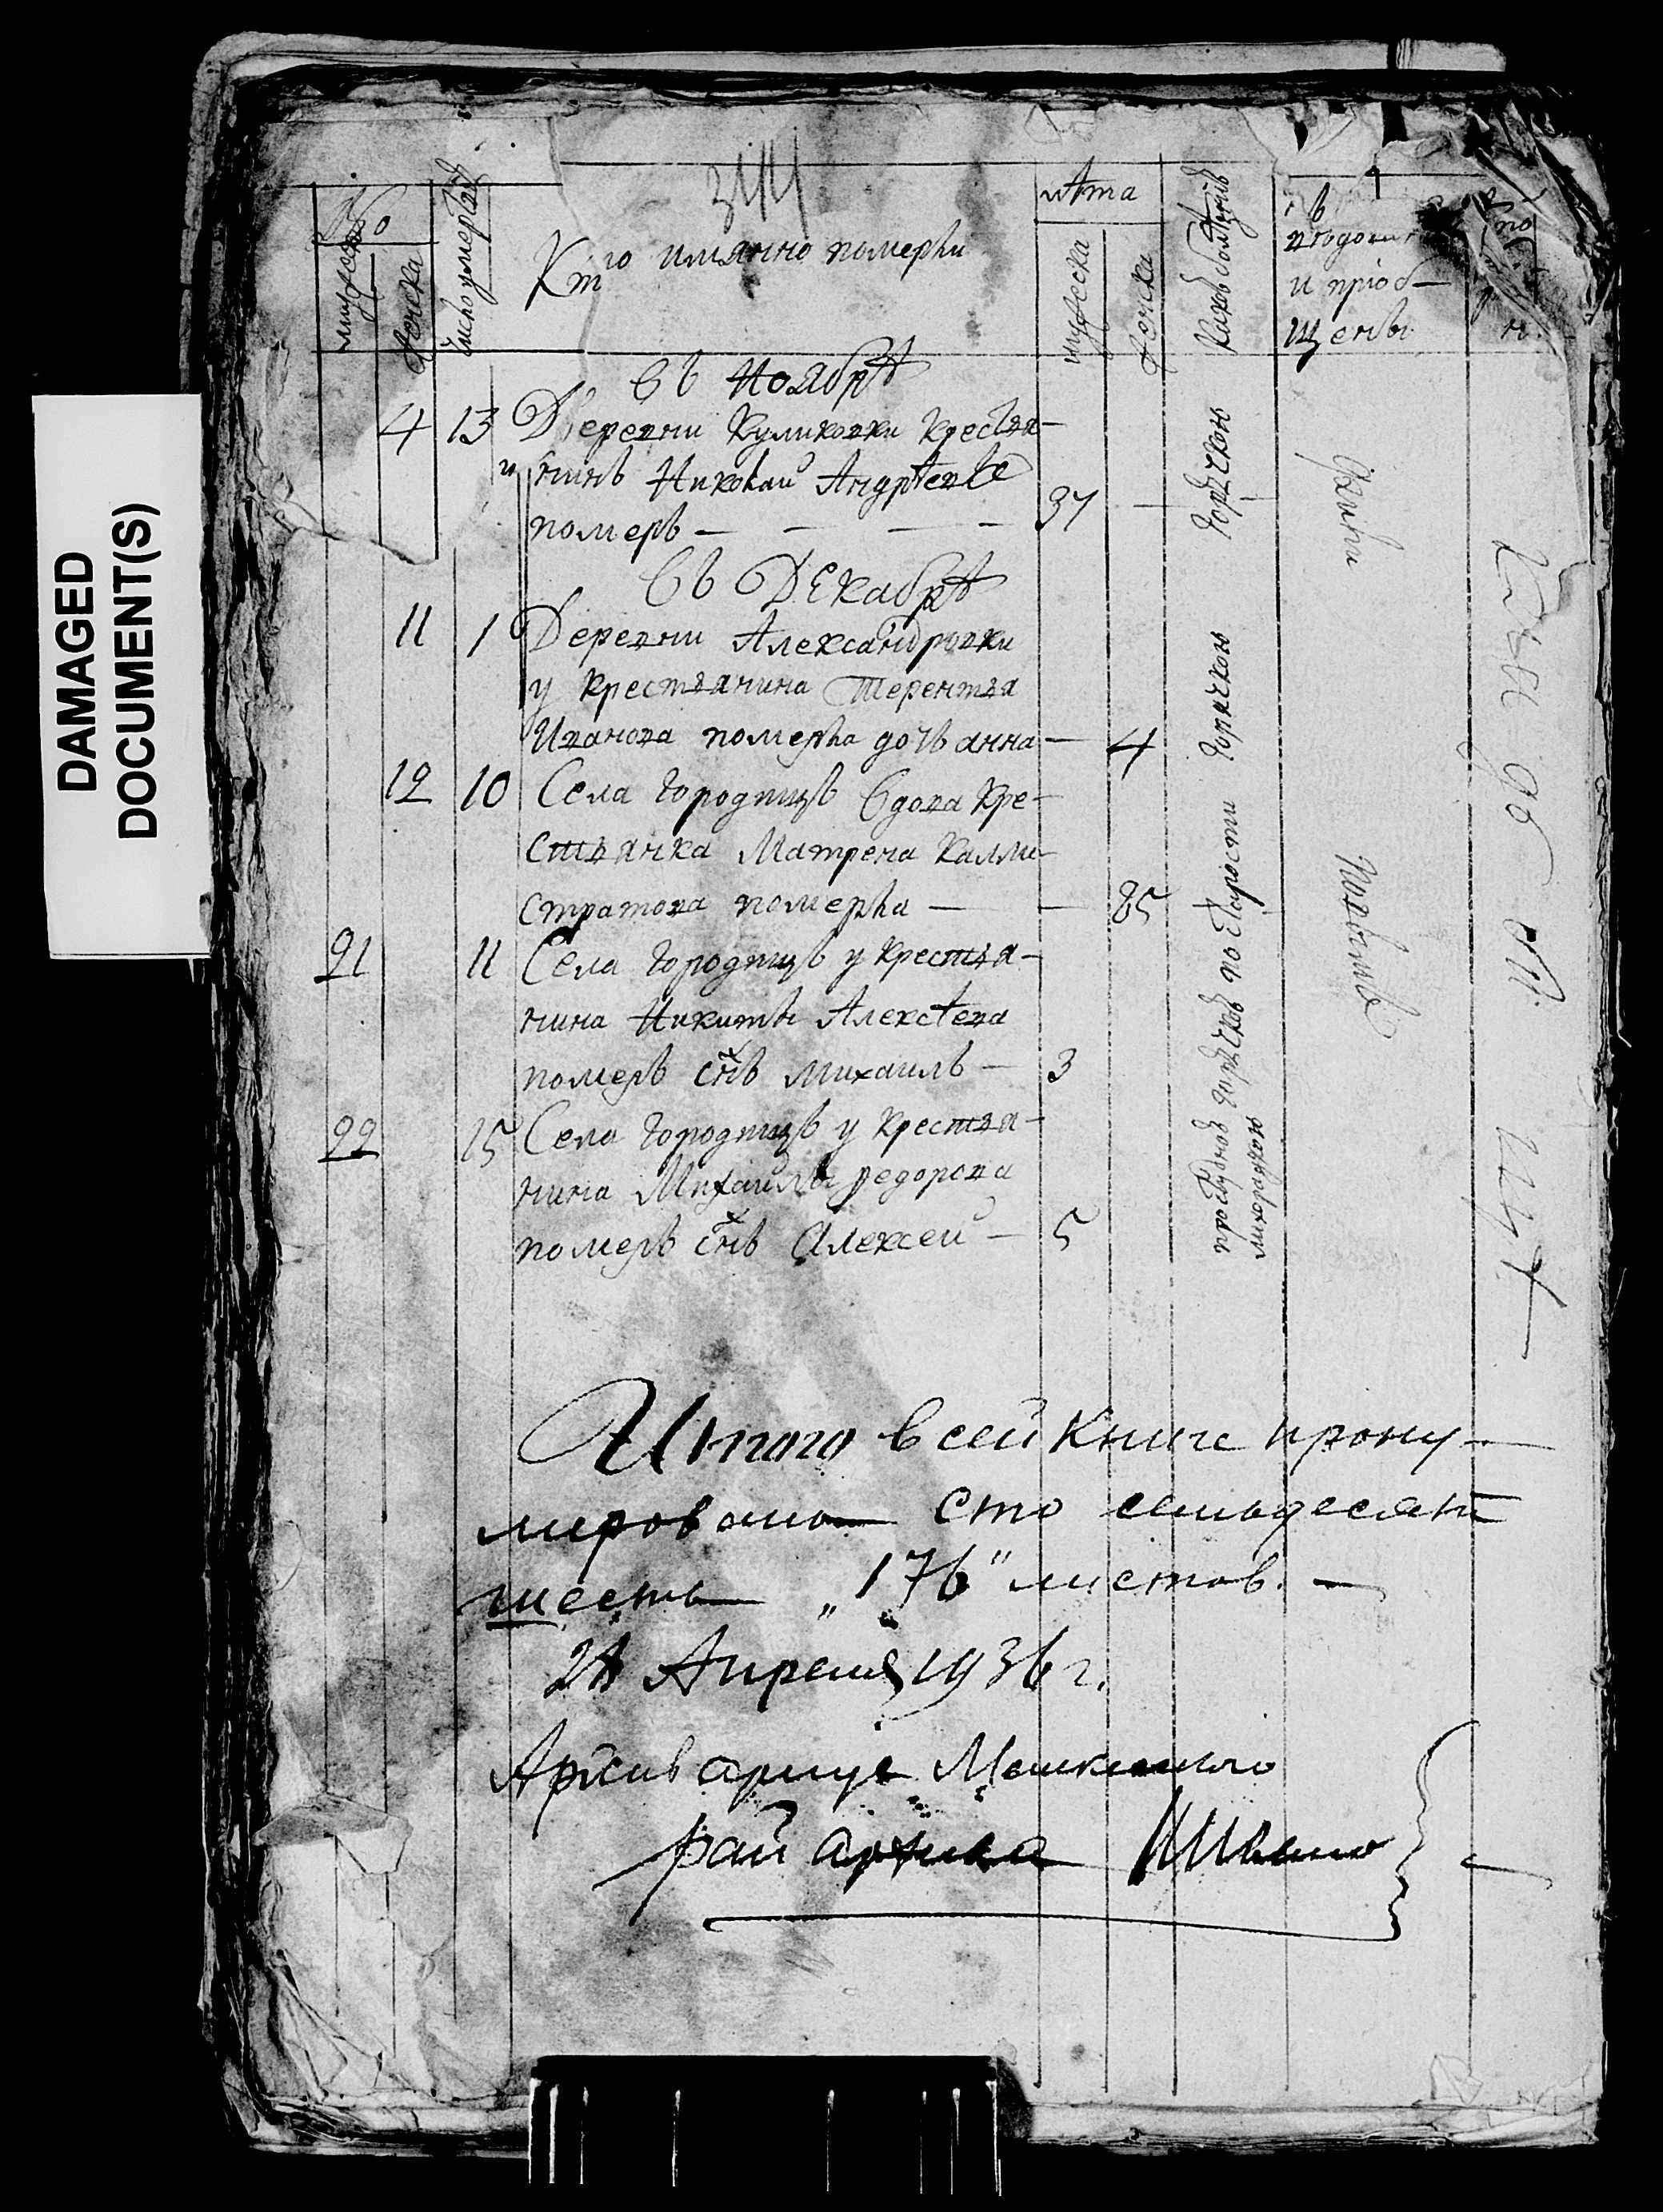 DAMAGED
DOCUMENT(S)
No
мужеска
женска
Число умертвій
Кто имянно померли
лѣта
мужеска
женска
и пріоб-
щены
Въ Ноябрѣ
4 13 Деревни Куликовки крестья-
нинъ Николай Андрѣевъ
померъ — — — — 37 — горячкою
Въ Декабрѣ
11 1 Деревни Александровки
у крестьянина Терентья
Иванова померла дочь анна — 4 горячкою
12 10 Села Городищъ вдова кре-
стьянка Матрена Калли-
стратова померла — — 85 по старости
21 11 Села Городищъ у крестья-
нина Никиты Алексѣева
померъ снъ михаилъ — 3
22 15 Села Городищъ у крестья-
нина Михаилы Федорова
померъ снъ Алексей — 5
лихорадкою
Итого в сей книге прону-
мировано сто семьдесять
шесть „176" листов. —
Апреля 1936 г.
Архивариус
рай архива